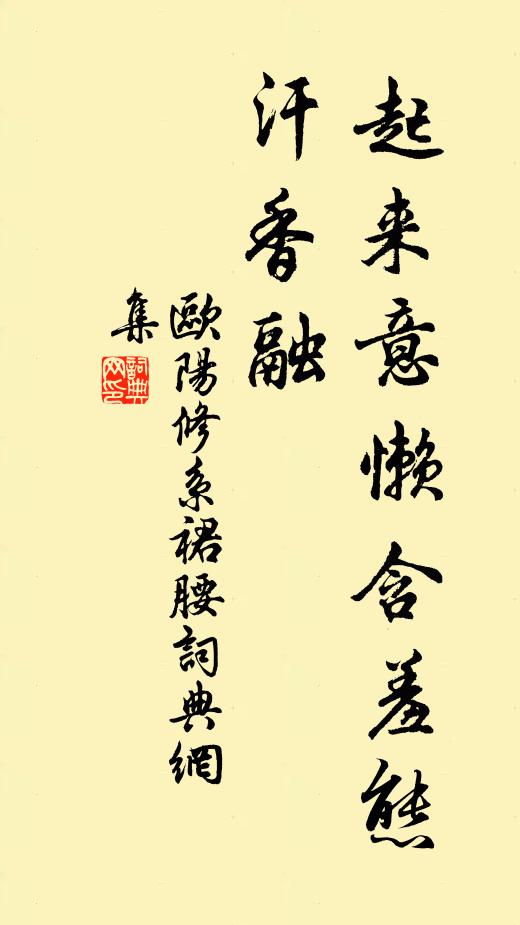 起来意懒含羞態
汗香融
歐陽修系裙腰詞典網
集
詞典
网印